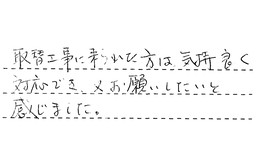 取替工事に来られた方は、気持良く
対応でき、又お願いしたいと
感じました。